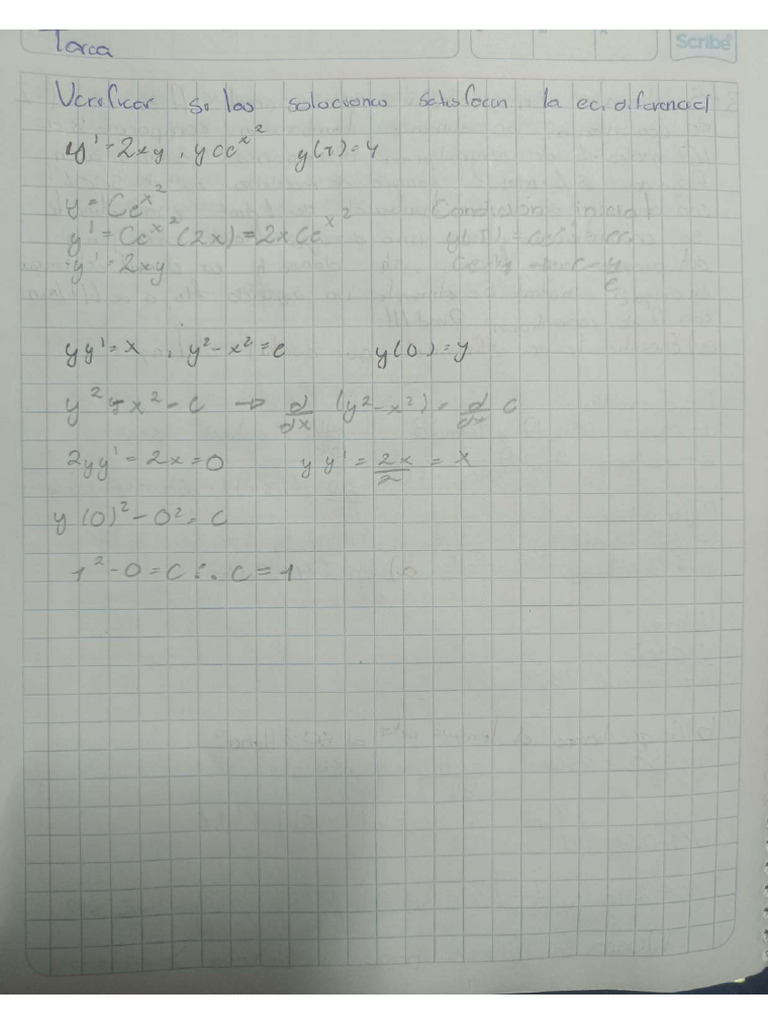 Tarea
Scribe
Verificar si las soluciones satisfacen la ec. diferencial
y' = 2xy , y C e^x^2 y(1) = 4
y = C e^x^2 Condición inicial
y' = C e^x^2 (2x) = 2x C e^x^2
y' = 2xy C = 4/e
yy' = x , y^2 - x^2 = c y(0) = y
y^2 - x^2 = C → d/dx (y^2 - x^2) = d/dx C
2yy' - 2x = 0 yy' = 2x/2 = x
y(0)^2 - 0^2 = C
1^2 - 0 = C ∴ C = 1